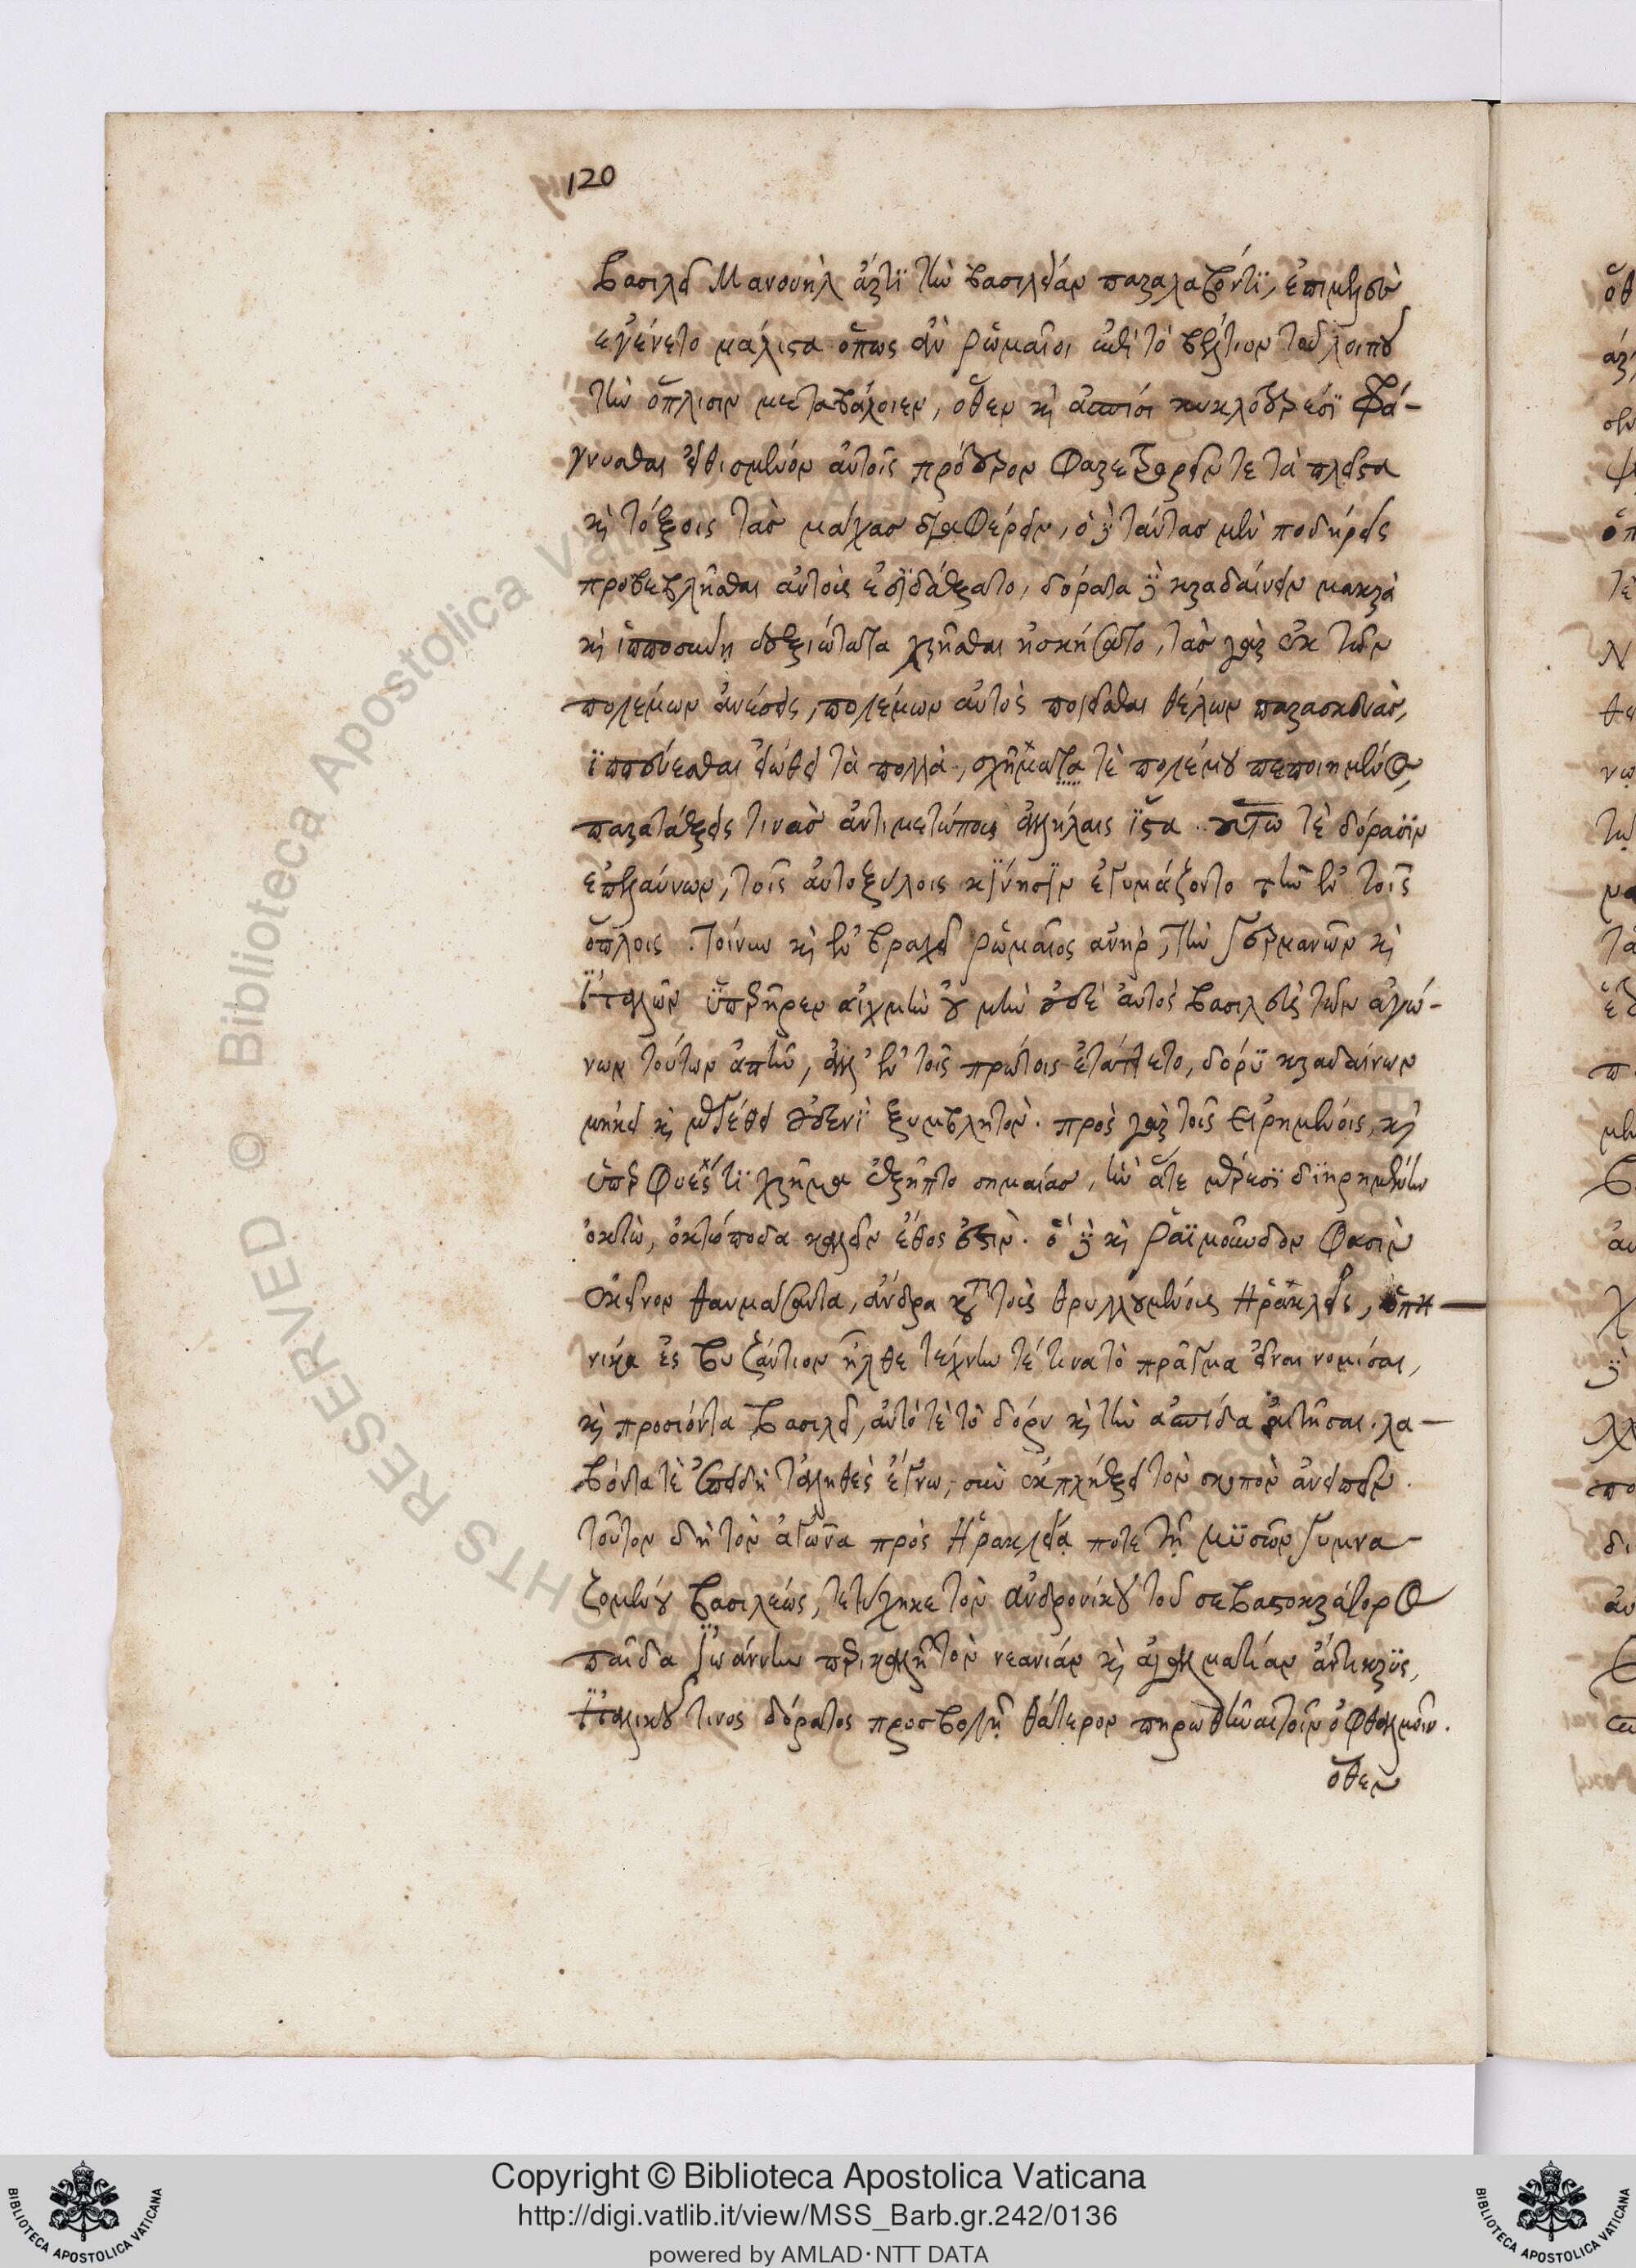 120
βασιλεῖ Μανουὴλ ἄρτι τὴν βασιλείαν παραλαβόντι, ἐπιμελὲς
ἐγένετο μάλιστα ὅπως ἂν Ῥωμαῖοι ἐπὶ τὸ βέλτιον τοῦ λοιποῦ
τὴν ὅπλισιν μεταβάλοιεν, ὅθεν καὶ ἀσπίσι κυκλοτερέσι φρά-
γνυσθαι εἰθισμένον αὐτοῖς πρότερον φαρετροφορεῖν τε τὰ πλεῖστα
καὶ τόξοις τὰς μάχας διαφέρειν, ὁ δὲ ταύτας μὲν ποδήρεις
προβεβλῆσθαι αὐτοὺς ἐδιδάξατο, δόρατα δὲ κραδαίνειν μακρὰ
καὶ ἱπποσύνῃ δεξιώτατα χρῆσθαι ἠσκήσατο, τὰς γὰρ ἐκ τῶν
πολέμων ἀνέσεις, πολέμων αὐτὸς ποιεῖσθαι θέλων παρασκευὰς,
ἱππεύεσθαι εἰώθει τὰ πολλὰ, σχήματα τὲ πολέμου πεποιημένος
παρατάξεις τινὰς ἀντιμετώπους ἀλλήλαις ἵστα. οὕτω τὲ δόρασιν
ἐπελαύνων, τοῖς αὐτοξύλοις κίνησιν ἐγυμάζοντο τὴν ἐν τοῖς
ὅπλοις. τοίνυν καὶ ἐν βραχεῖ Ῥωμαῖος ἀνὴρ, τὴν Γερμανῶν καὶ
Ἰταλῶν ὑπερῆρεν αἰχμὴν οὐ μὴν οὐδὲ αὐτὸς βασιλεὺς τῶν ἀγώ-
νων τούτων ἀπῆν, ἀλλ' ἐν τοῖς πρώτοις ἐτάττετο, δόρυ κραδαίνων
μήκει καὶ μεγέθει οὐδενὶ ξυμβλητὸν. πρὸς γὰρ τοῖς εἰρημένοις, καὶ
ὑπερφυές τι χρῆμα ἐξῆπτο σημαίας, ἣν ἅτε μέρεσι διῃρημένην
ὀκτὼ, ὀκτώποδα καλεῖν ἔθος ἐστὶν. ὃ δὲ καὶ Ῥαϊμοῦνδον φασὶν
ἐκεῖνον θαυμάσαντα, ἄνδρα κατὰ τοὺς θρυλλουμένους Ἡρακλεῖς, ὁπη-
νίκα ἐς Βυζάντιον ἦλθε τέχνην τέ τινα τὸ πρᾶγμα εἶναι νομίσαι,
καὶ προσιόντα βασιλεῖ, αὐτό τὲ τὸ δόρυ καὶ τὴν ἀσπίδα αἰτῆσαι. λα-
βόντα τὲ ἐπειδὴ τἀληθὲς ἔγνω, σὺν ἐκπλήξει τὸν σκοπὸν ἀνειπεῖν.
τοῦτον δὴ τὸν ἀγῶνα πρὸς Ἡρακλείᾳ ποτὲ τῇ Μυσῶν γυμνα-
ζομένου βασιλέως, τετύχηκε τὸν Ἀνδρονίκου τοῦ σεβαστοκράτορος
παῖδα Ἰωάννην περικαλλῆ τὸν νεανίαν καὶ ἀγαλματίαν ἄντικρυς,
Ἰταλικοῦ τινος δόρατος προσβολῇ θάτερον πηρωθῆναι τοῖν ὀφθαλμοῖν.
ὅθεν
Copyright © Biblioteca Apostolica Vaticana
http://digi.vatlib.it/view/MSS_Barb.gr.242/0136
powered by AMLAD·NTT DATA